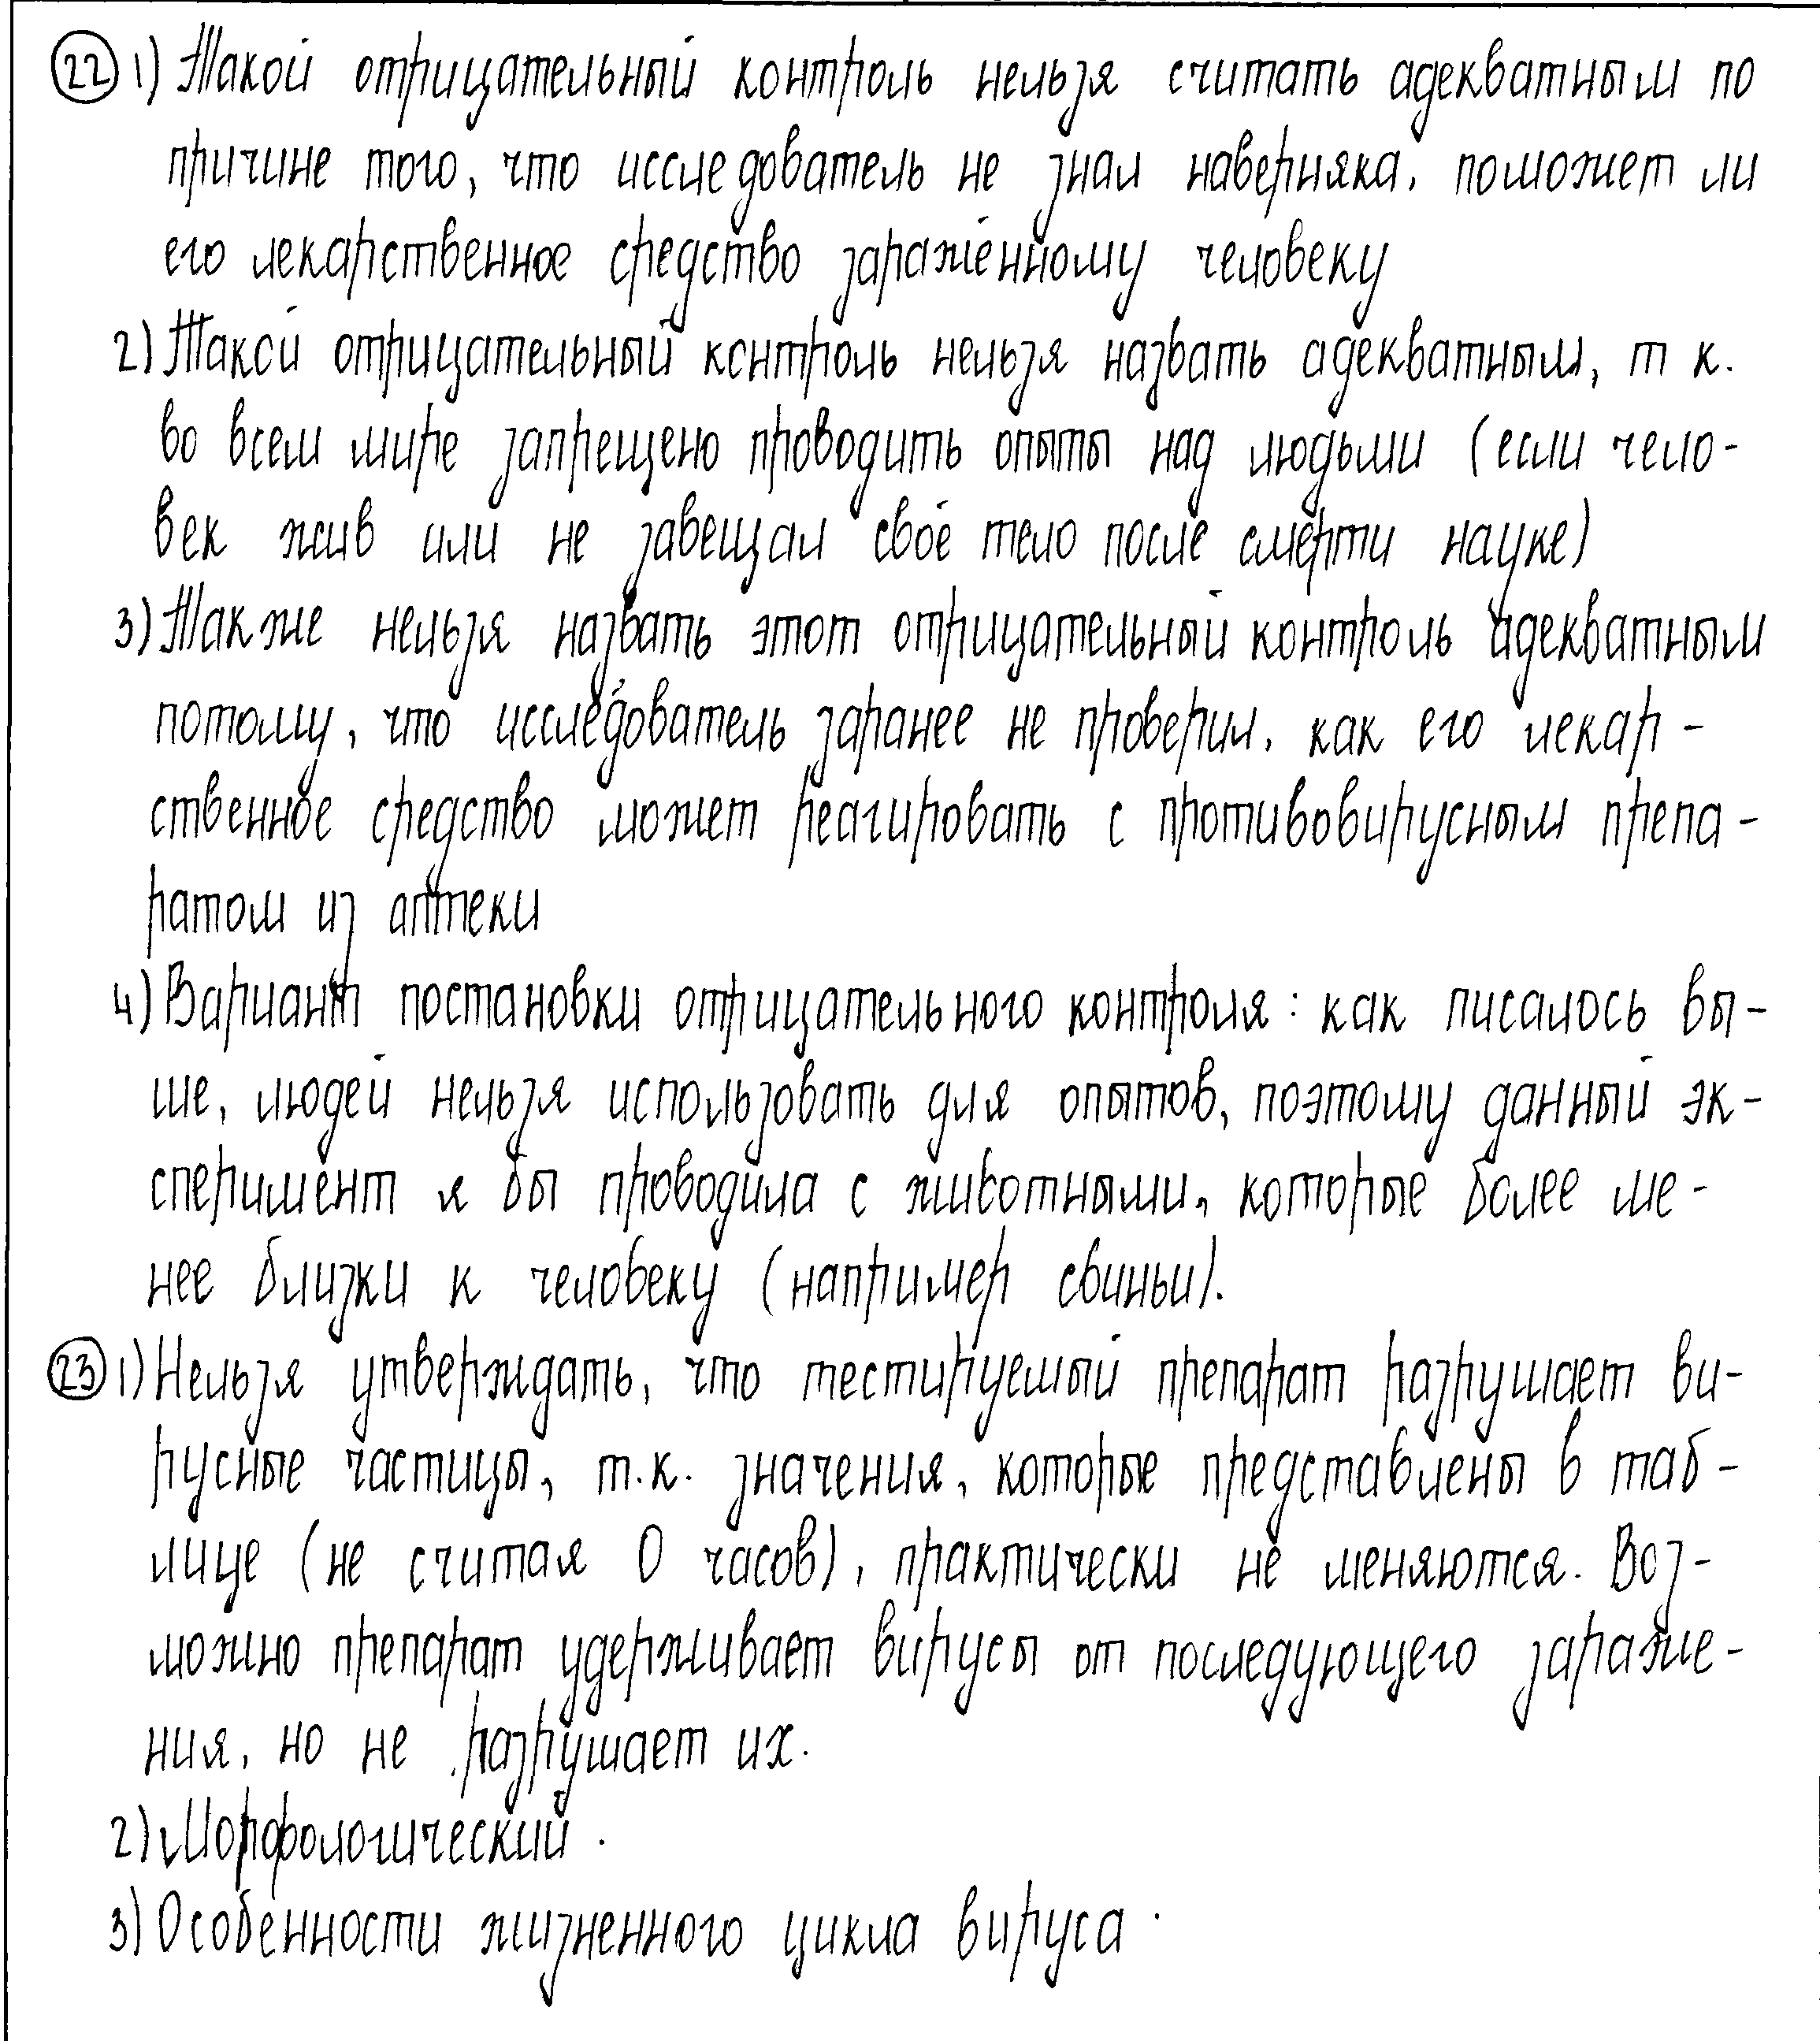 22 1) Такой отрицательный контроль нельзя считать адекватным по
причине того, что исследователь не знал наверняка, поможет ли
его лекарственное средство заражённому человеку
2) Такой отрицательный контроль нельзя назвать адекватным, т к.
во всем мире запрещено проводить опыты над людьми (если чело-
век жив или не завещал своё тело после смерти науке)
3) Также нельзя назвать этот отрицательный контроль адекватным
потому, что исследователь заранее не проверил, как его лекар-
ственное средство может реагировать с противовирусным препа-
ратом из аптеки
4) Вариант постановки отрицательного контроля: как писалось вы-
ше, людей нельзя использовать для опытов, поэтому данный эк-
сперимент я бы проводила с животными, которые более ме-
нее близки к человеку (например свиньи).
23 1) Нельзя утверждать, что тестируемый препарат разрушает ви-
русные частицы, т.к. значения, которые представлены в таб-
лице (не считая 0 часов), практически не меняются. Воз-
можно препарат удерживает вирусы от последующего зараже-
ния, но не разрушает их.
2) Морфологический.
3) Особенности жизненного цикла вируса.